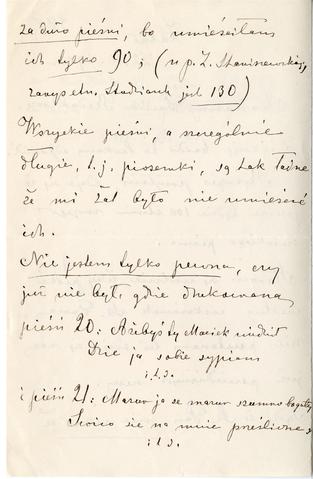 za dużo pieśni, bo umieściłam
ich tylko 90; (u p. Z. Staniszewskiej,
zarys etn. Studzianek jest 130)
Wszystkie pieśni, a szczególnie
długie, t. j. piosenki, są tak ładne
że mi żal było nie umieścić
ich.
Nie jestem tylko pewna, czy
już nie był, gdzie drukowana
pieśń 20: Ażebyś ty Maciek wiedział
Dzie ja sobie sypiam
i t. d.
i pieśń 21: Mazur ja se mazur szumno bogaty
Swico się na mnie prześliczne
i t. d.